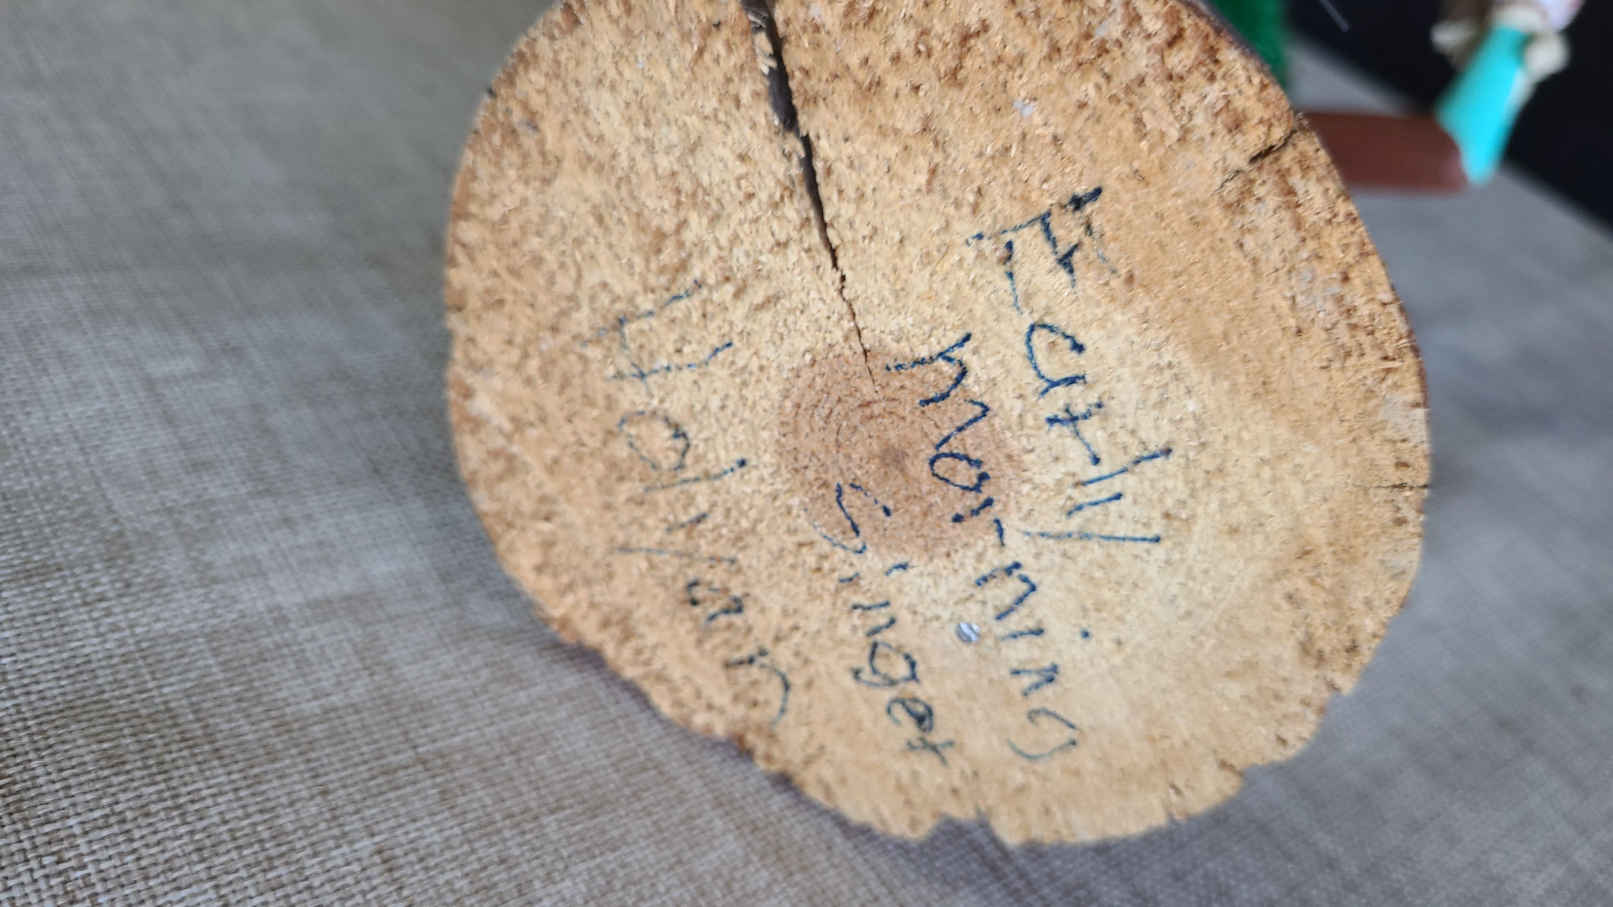 Early
morning
Singer
Holyan